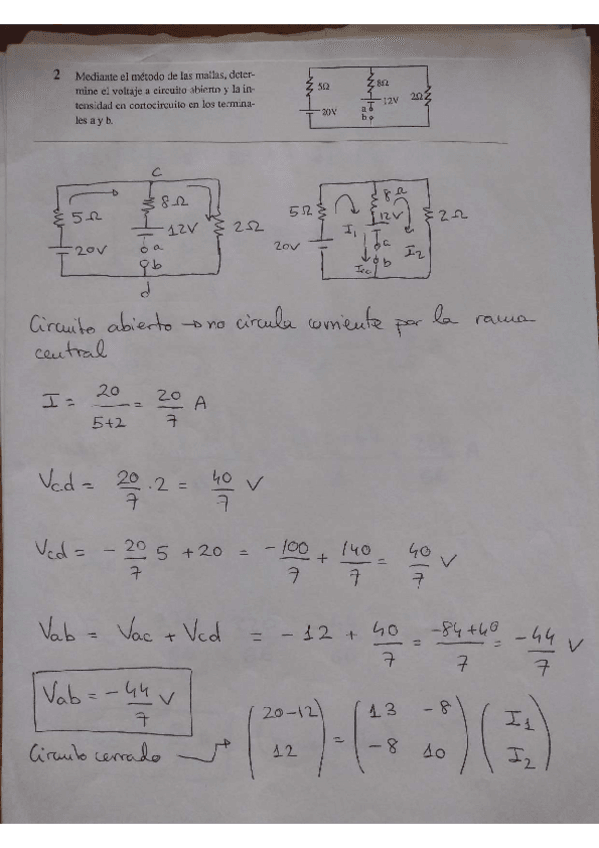 2 Mediante el método de las mallas, deter-
mine el voltaje a circuito abierto y la in-
tensidad en cortocircuito en los termina-
les a y b.
5Ω 8Ω 2Ω
20V 12V
a
b
c
5Ω 8Ω 2Ω
20V 12V
a
b
d
5Ω 8Ω 2Ω
20V 12V
I1 Icc I2
a
b
Circuito abierto → no circula corriente por la rama
central
I = 20/(5+2) = 20/7 A
Vcd = 20/7 . 2 = 40/7 V
Vcd = - 20/7 5 + 20 = -100/7 + 140/7 = 40/7 V
Vab = Vac + Vcd = -12 + 40/7 = (-84+40)/7 = -44/7 V
Vab = -44/7 V
Circuito cerrado → (20-12 12) = (13 -8 -8 10) (I1 I2)